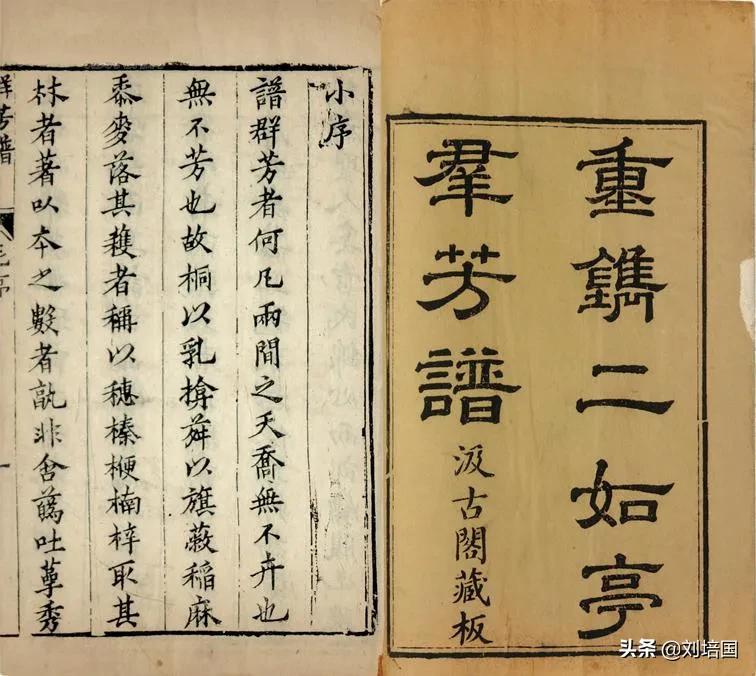 重鐫二如亭
羣芳譜
汲古閣藏板
小序
譜群芳者何凡兩間之夭喬無不卉也
無不芳也故桐以乳搶以旗菽稻麻
黍麥落其穫者稱以穗榛楩楠梓取其
材者著以本之數者孰非含吐秀
群芳譜
头条 @刘培国